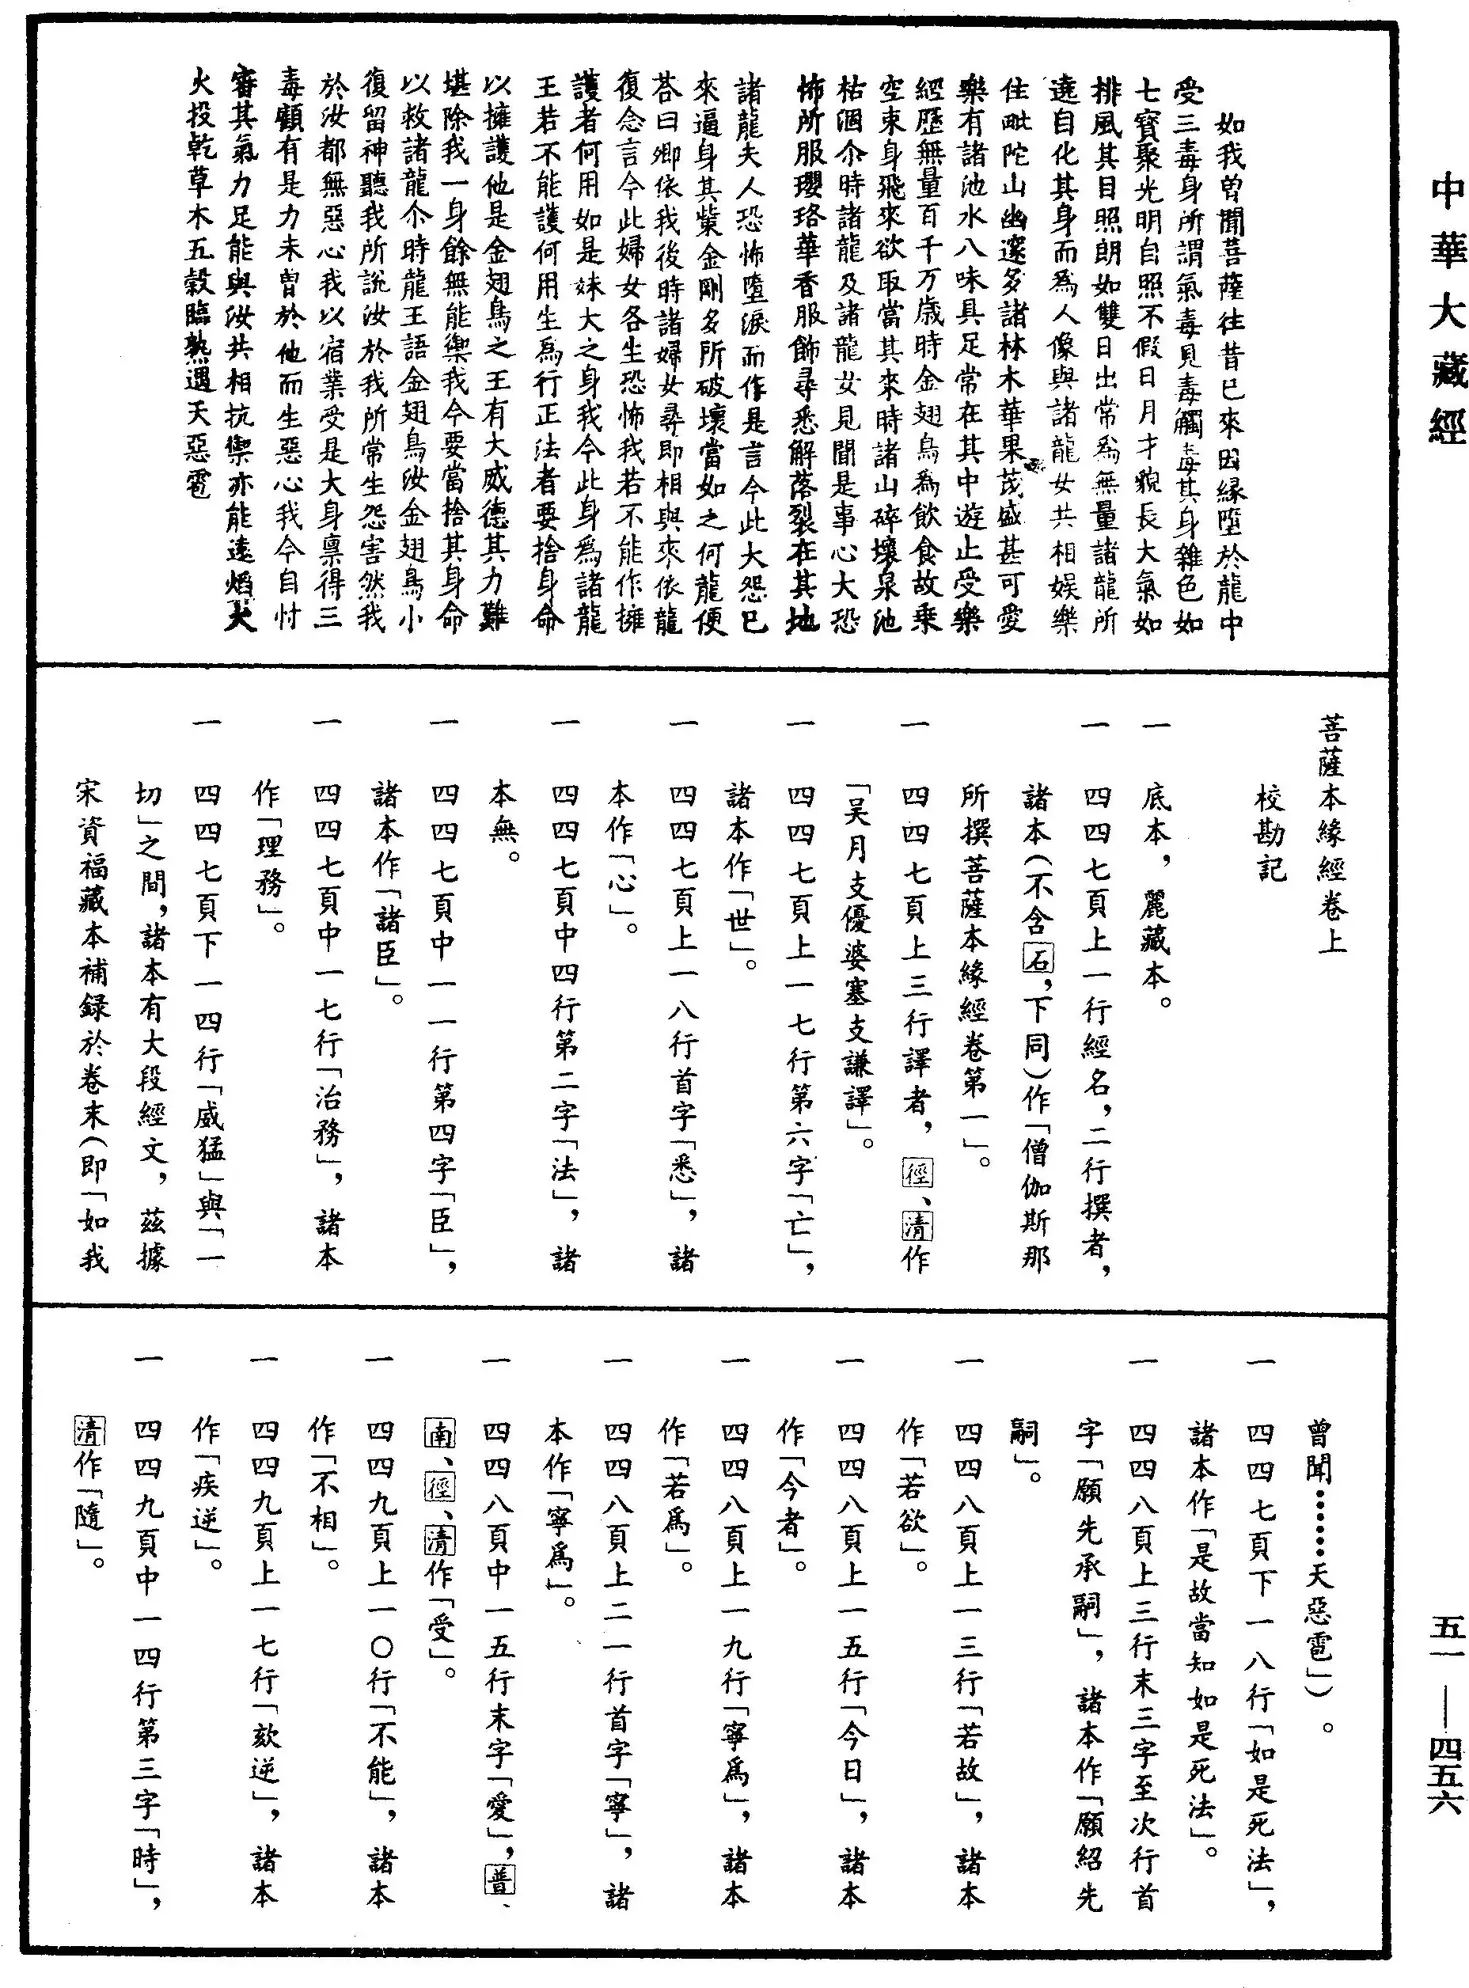 中華大藏經
如我曽聞菩薩往昔已來因縁墮於龍中
受三毒身所謂氣毒見毒觸毒其身雜色如
七寶聚光明自照不假日月才貌長大氣如
排風其目照朗如雙日出常爲無量諸龍所
遶自化其身而爲人像與諸龍女共相娛樂
住毗陀山幽邃多諸林木華果茂盛甚可愛
樂有諸池水八味具足常在其中遊止受樂
經歷無量百千万歲時金翅鳥爲飲食故乗
空束身飛來欲取當其來時諸山碎壞泉池
枯涸尒時諸龍及諸龍女見聞是事心大恐
怖所服瓔珞華香服飾尋悉解落裂在其地
諸龍夫人恐怖墮淚而作是言今此大怨已
來逼身其觜金剛多所破壞當如之何龍便
荅曰卿依我後時諸婦女尋即相與來依龍
復念言今此婦女各生恐怖我若不能作擁
護者何用如是殊大之身我今此身爲諸龍
王若不能護何用生爲行正法者要捨身命
以擁護他是金翅鳥之王有大威德其力難
堪除我一身餘無能禦我今要當捨其身命
以救諸龍尒時龍王語金翅鳥汝金翅鳥小
復留神聽我所說汝於我所常生怨害然我
於汝都無惡心我以宿業受是大身禀得三
毒顧有是力未曽於他而生惡心我今自忖
審其氣力足能與汝共相抗禦亦能遠焰大
火投乾草木五穀臨熟遇天惡雹
菩薩本緣經卷上
校勘記
一　底本，麗藏本。
一　四四七頁上一行經名，二行撰者，
諸本（不含石，下同）作「僧伽斯那
所撰菩薩本緣經卷第一」。
一　四四七頁上三行譯者，徑、清作
「吴月支優婆塞支謙譯」。
一　四四七頁上一七行第六字「亡」，
諸本作「世」。
一　四四七頁上一八行首字「悉」，諸
本作「心」。
一　四四七頁中四行第二字「法」，諸
本無。
一　四四七頁中一一行第四字「臣」，
諸本作「諸臣」。
一　四四七頁中一七行「治務」，諸本
作「理務」。
一　四四七頁下一四行「威猛」與「一
切」之間，諸本有大段經文，茲據
宋資福藏本補録於卷末（即「如我
曾聞……天惡雹」）。
一　四四七頁下一八行「如是死法」，
諸本作「是故當知如是死法」。
一　四四八頁上三行末三字至次行首
字「願先承嗣」，諸本作「願紹先
嗣」。
一　四四八頁上一三行「若故」，諸本
作「若欲」。
一　四四八頁上一五行「今日」，諸本
作「今者」。
一　四四八頁上一九行「寧爲」，諸本
作「若爲」。
一　四四八頁上二一行首字「寧」，諸
本作「寧爲」。
一　四四八頁中一五行末字「愛」，普、
南、徑、清作「受」。
一　四四九頁上一〇行「不能」，諸本
作「不相」。
一　四四九頁上一七行「欬逆」，諸本
作「疾逆」。
一　四四九頁中一四行第三字「時」，
清作「隨」。
五一—四五六